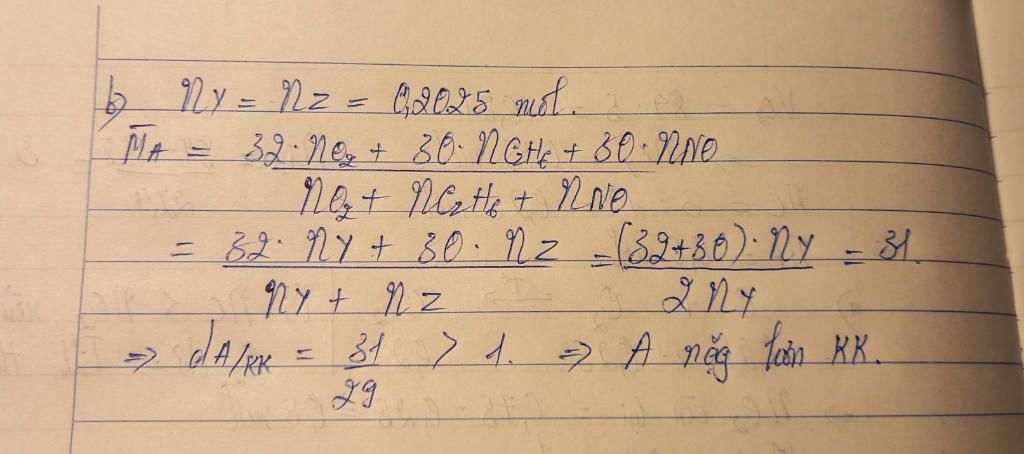 b) nY = nZ = 0,2025 mol.
M̄A = (32·nO₂ + 30·nC₂H₆ + 30·nNO) / (nO₂ + nC₂H₆ + nNO)
= (32·nY + 30·nZ) / (nY + nZ) = ((32+30)·nY) / (2nY) = 31.
=> dA/KK = 31/29 > 1. => A nặg hơn KK.